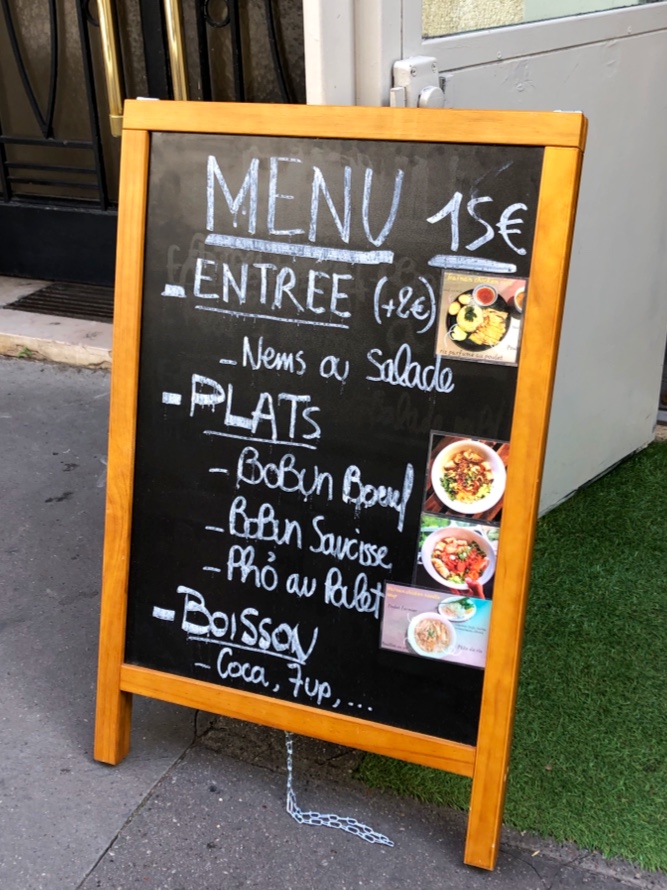 MENU 15€
- ENTREE (+2€)
- Nems ou Salade
- PLATS
- BoBun Boeuf
- BoBun Saucisse
- Phở au Poulet
- BOISSON
- Coca, 7up, ...